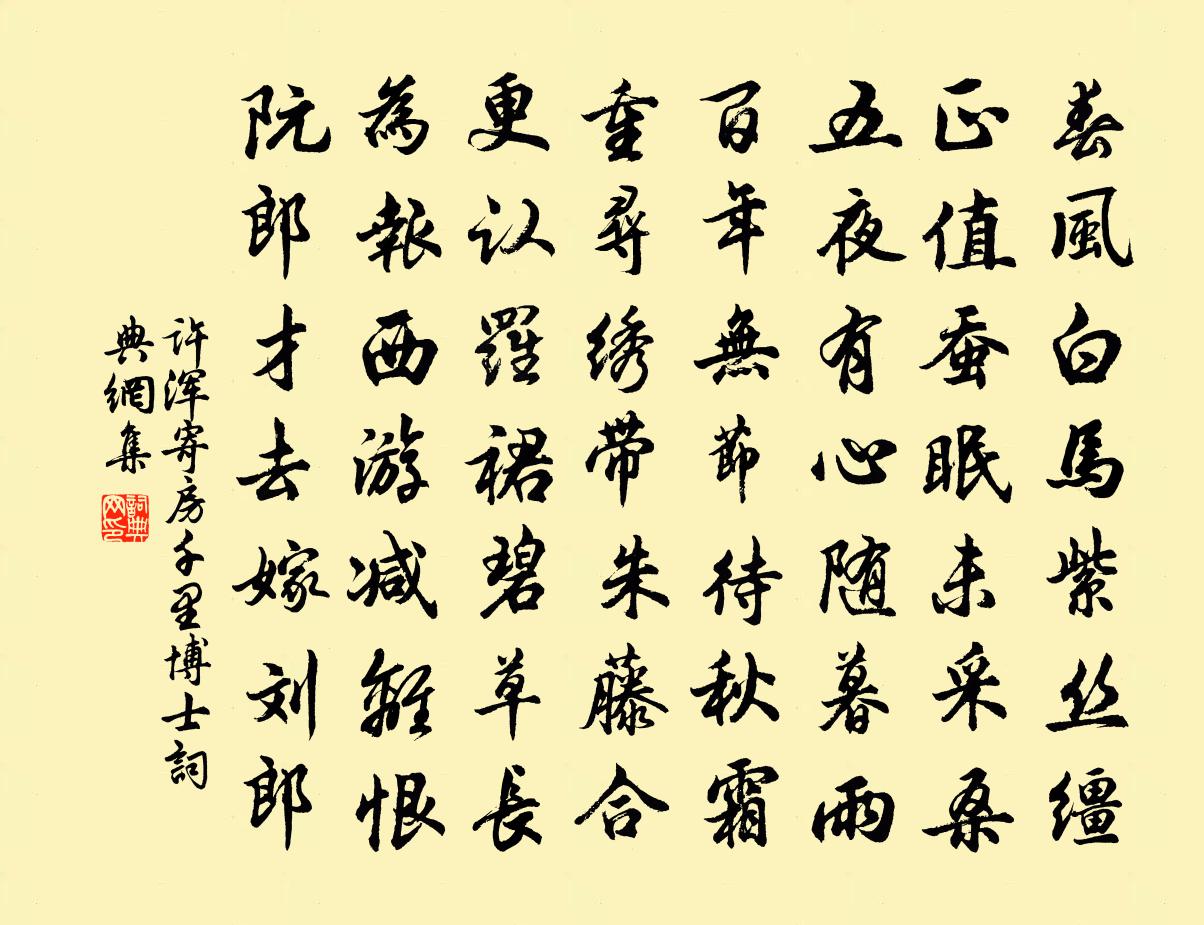 春風白馬紫丝缰
正值蚕眠未采桑
五夜有心随暮雨
百年無節待秋霜
重尋绣带朱藤合
更认羅裙碧草長
為報西游减離恨
阮郎才去嫁刘郎
许浑寄房千里博士詞
典網集
詞典
网印